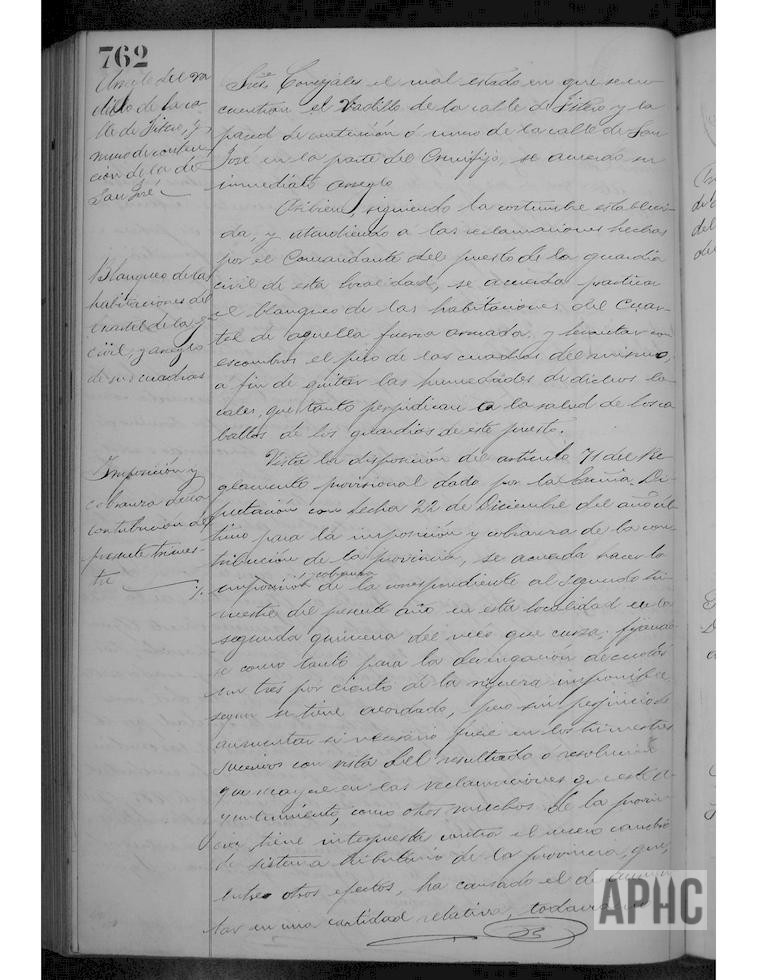 762
Arreglo del va
dillo de la ca-
lle de Fitero, y
muro de conten-
ción de la de
San José
Sres. Concejales el mal estado en que se en-
cuentran el Vadillo de la calle de Fitero y la
pared de contención ó muro de la calle de San
José en la parte del Crucifijo, se acuerda su
inmediato arreglo
Blanqueo de las
habitaciones del
Cuartel de la g.
civil, y arreglo
de sus cuadras
siguiendo la costumbre estableci-
da, y atendiendo á las reclamaciones hechas
por el Comandante del puesto de la guardia
civil de esta localidad, se acuerda practicar
el blanqueo de las habitaciones del Cuar-
tel de aquella fuerza armada, y levantar con
escombros el piso de las cuadras del mismo,
á fin de quitar las humedades de dichos lo-
cales, que tanto perjudican a la salud de los ca
ballos de los guardias de este puesto.
Imposición y
cobranza de la
contribución del
presente trimes-
tre
Vista la disposición del artículo 71 del Re-
glamento provisional dado por la Excma Di-
putación con fecha 22 de Diciembre del año úl-
timo para la imposición y cobranza de la con-
tribución de la provincia, se acuerda hacer la
imposición y cobranza de la correspondiente al segundo tri-
mestre del presente año en esta localidad en la
segunda quincena del mes que cursa, fijando
se como tanto para la derrama de cuotas
un tres por ciento de la riqueza imponible
segun se tiene acordado, pero sin perjuicio de
aumentar si necesario fuese en los trimestres
sucesivos con vista del resultado o resolución
que recayese en las reclamaciones que este A-
yuntamiento, como otros muchos de la provin-
cia, tiene interpuesta contra el nuevo cambio
de sistema tributario de la provincia, que,
entre otros efectos, ha causado el de
tar en una cantidad relativa, todavía
APHC